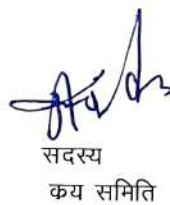 सदस्य
कय समिति